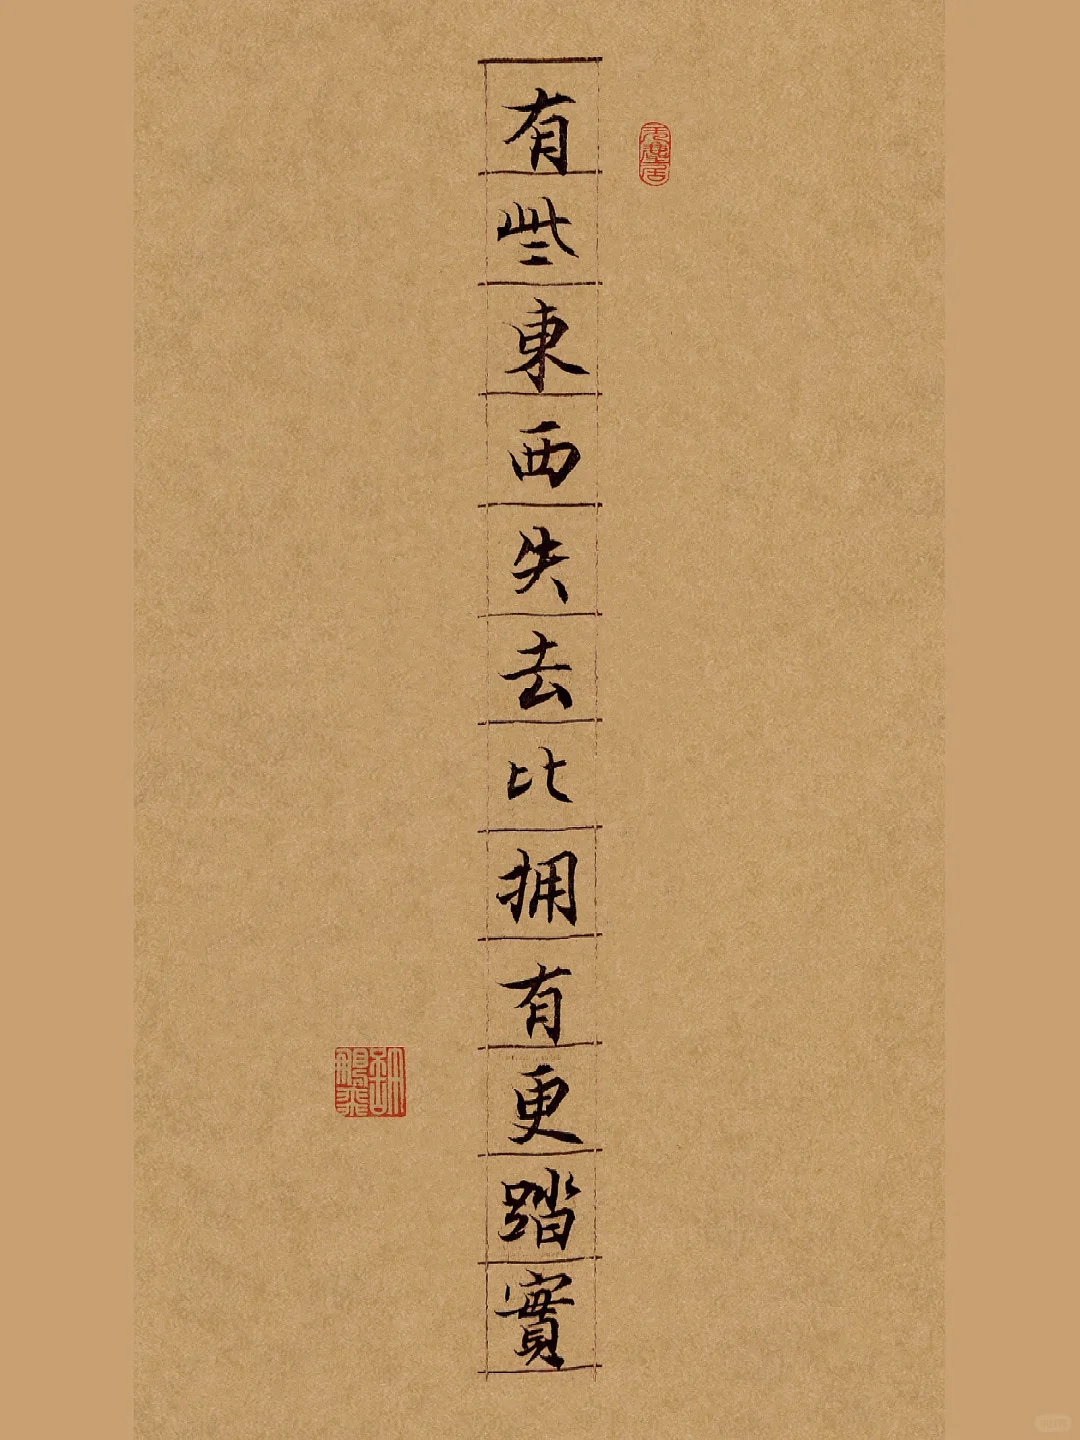 有些東西失去比拥有更踏實